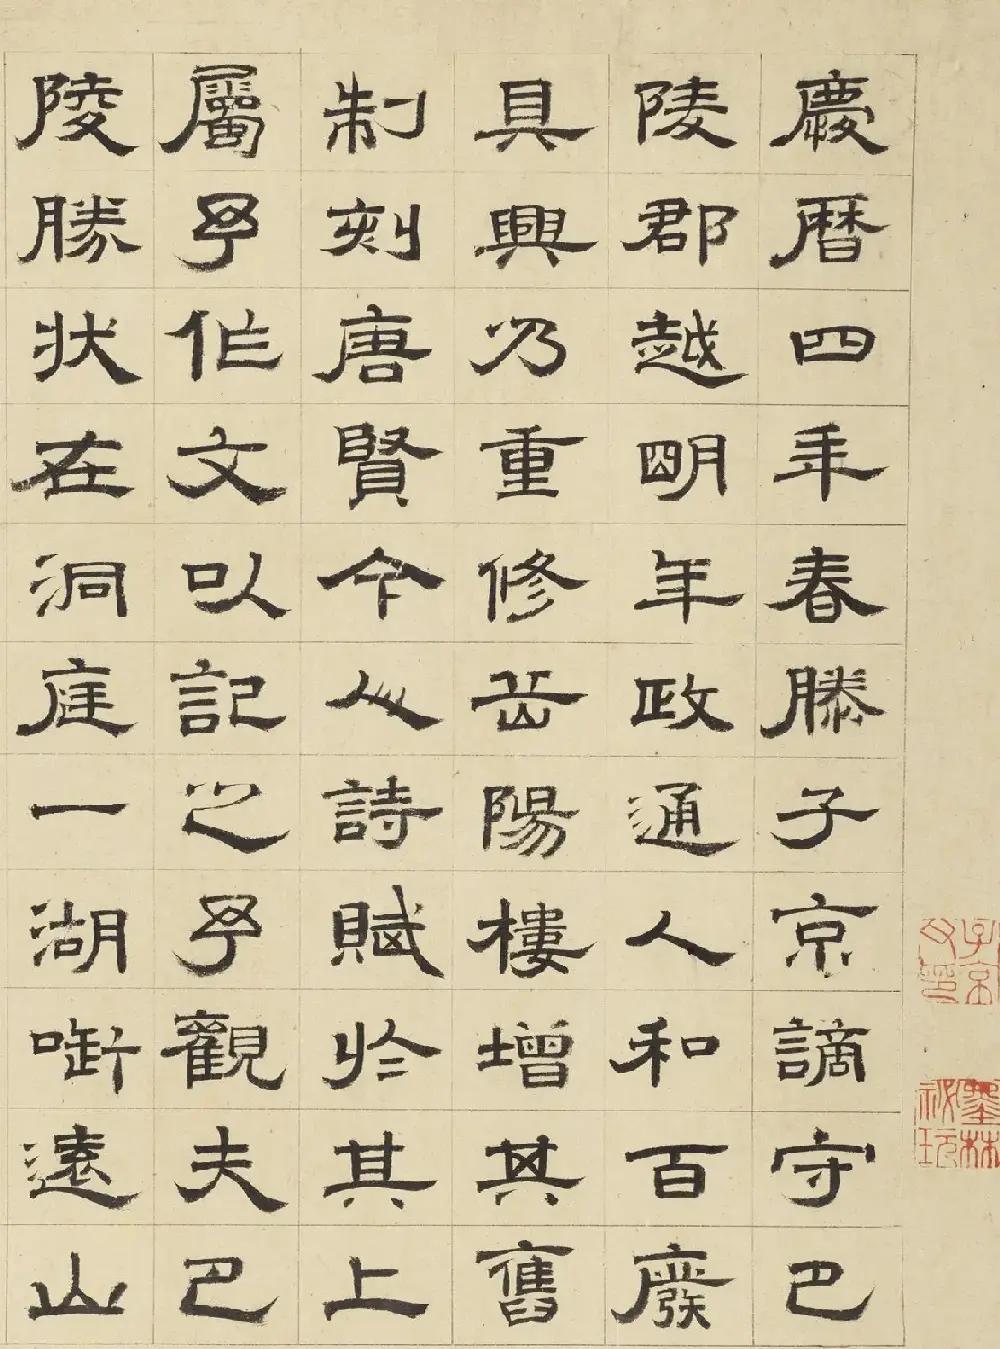 慶曆四年春滕子京謫守巴
陵郡越明年政通人和百廢
具興乃重修岳陽樓增其舊
制刻唐賢今人詩賦於其上
屬予作文以記之予觀夫巴
陵勝狀在洞庭一湖啣遠山
子京父印
墨林祕玩